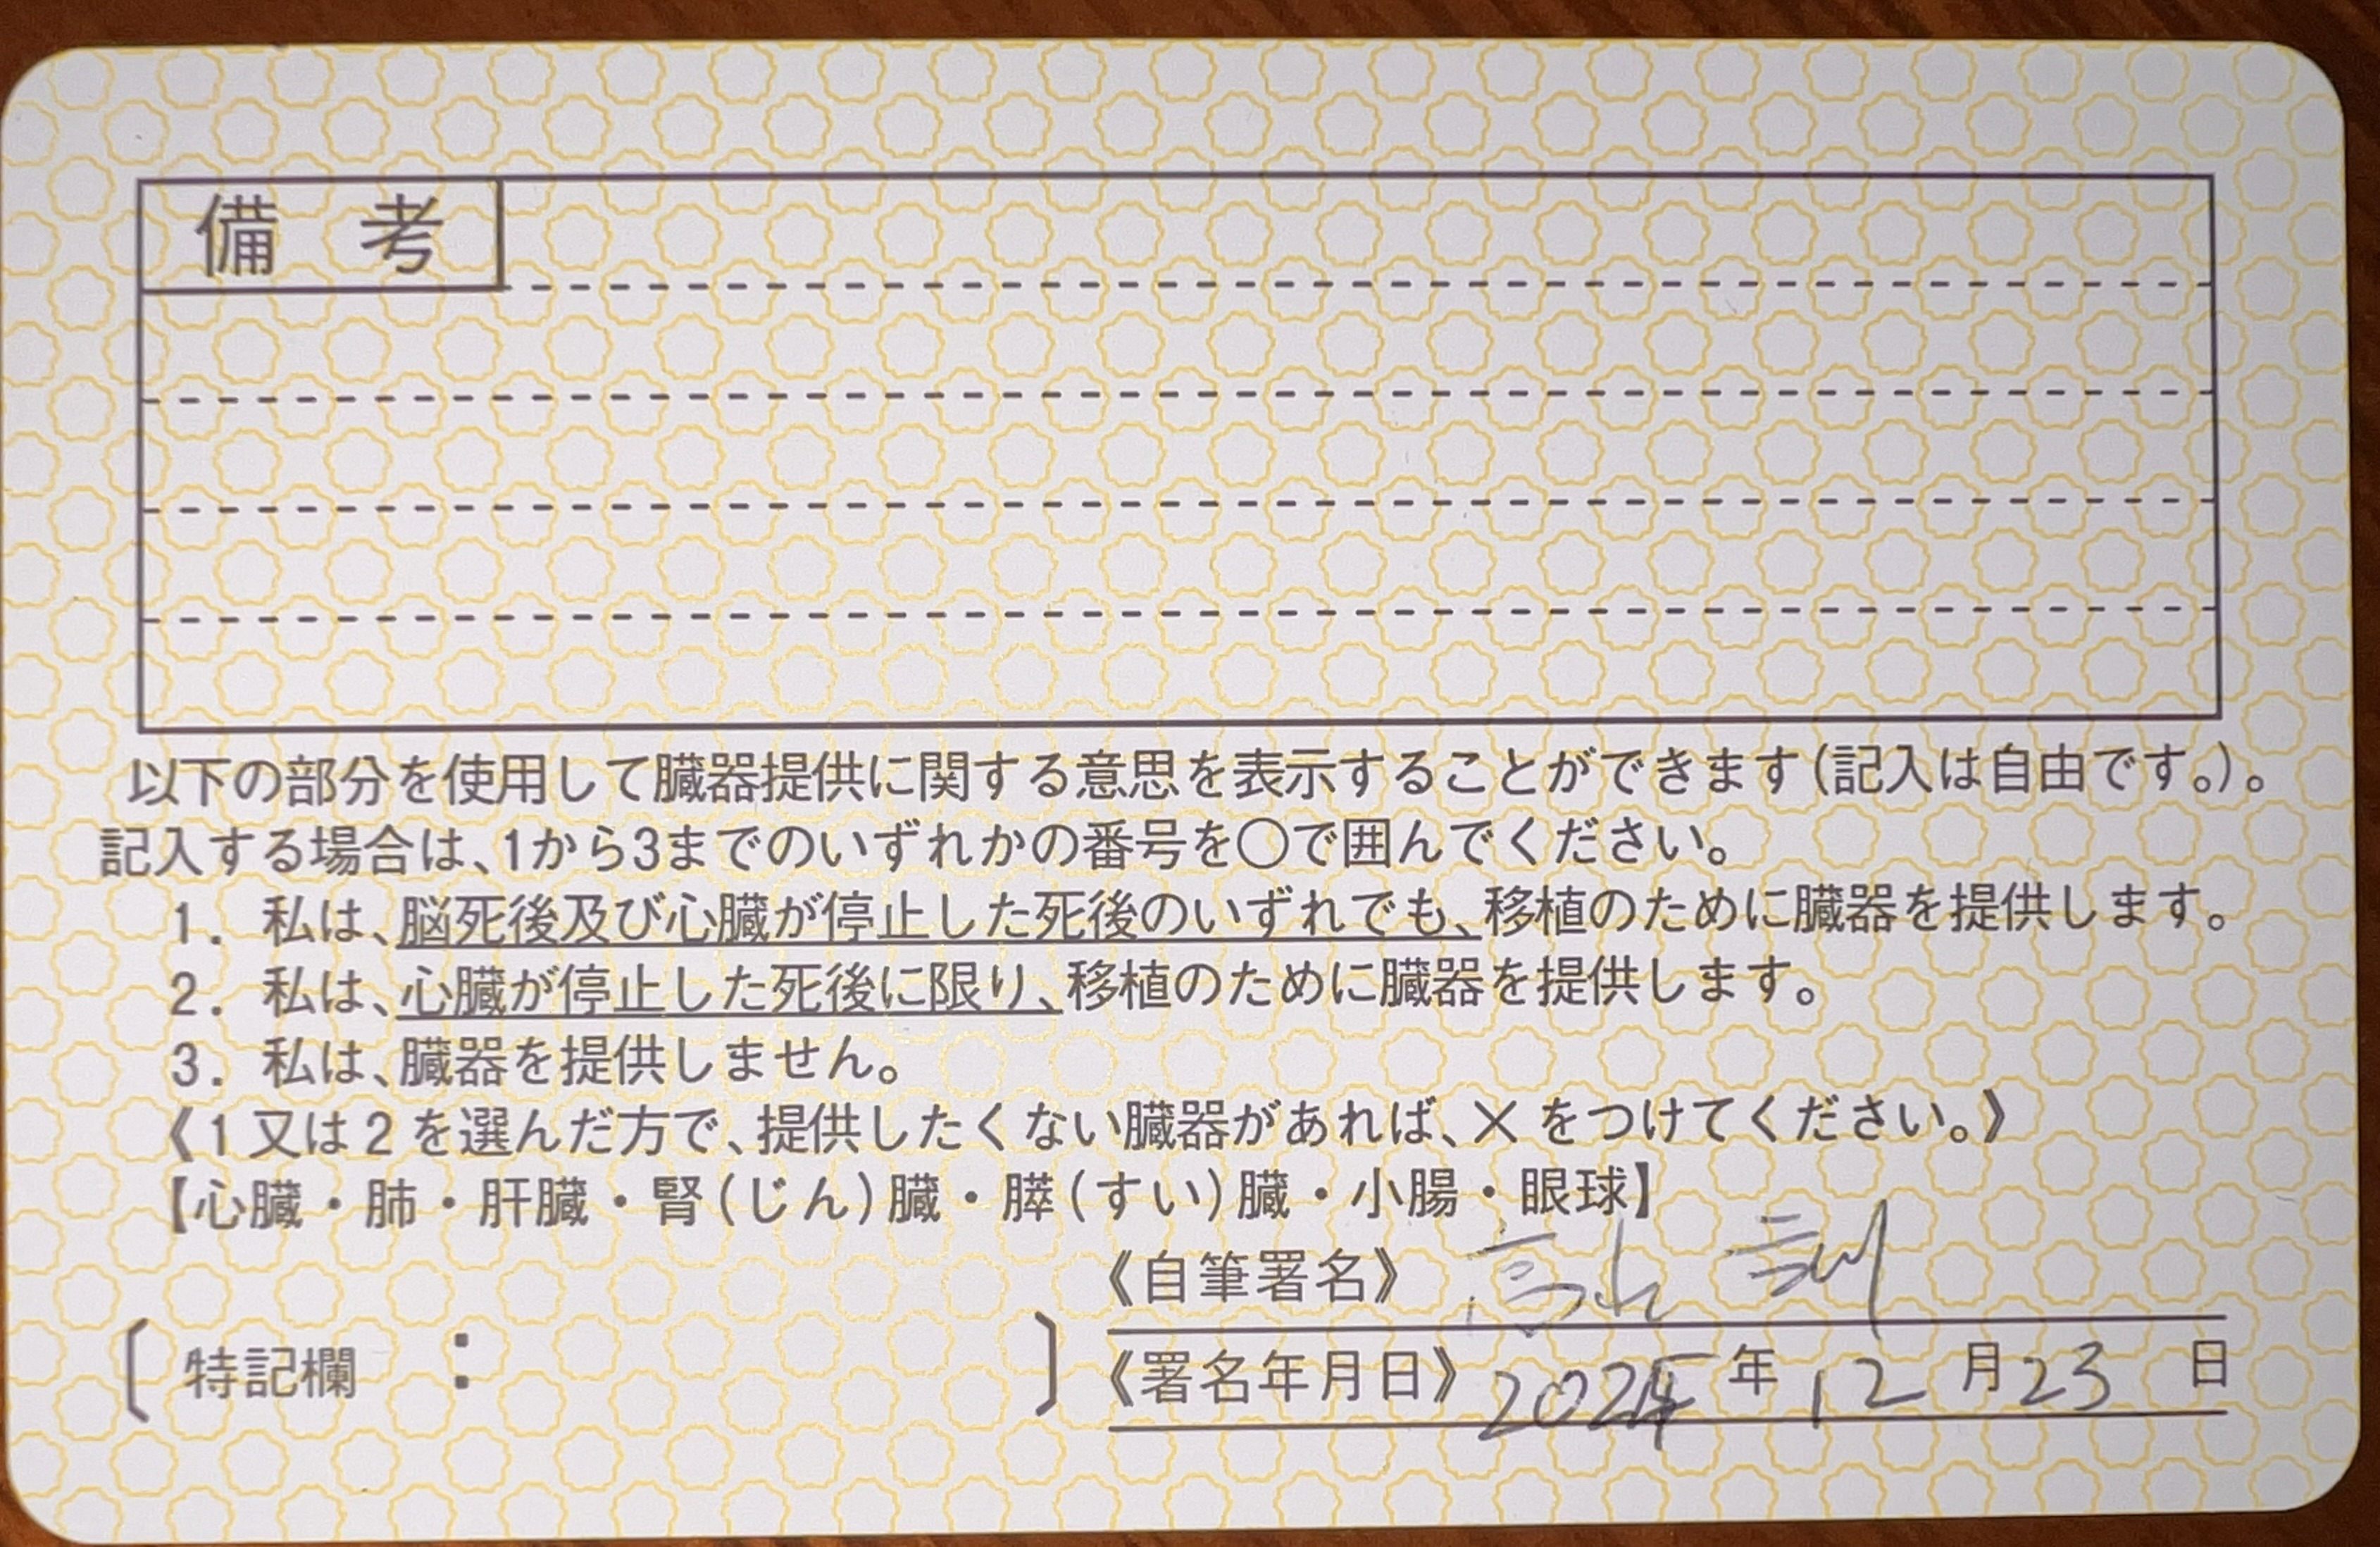 備 考
以下の部分を使用して臓器提供に関する意思を表示することができます(記入は自由です。)。
記入する場合は、1から3までのいずれかの番号を〇で囲んでください。
1. 私は、脳死後及び心臓が停止した死後のいずれでも、移植のために臓器を提供します。
2. 私は、心臓が停止した死後に限り、移植のために臓器を提供します。
3. 私は、臓器を提供しません。
《1又は2を選んだ方で、提供したくない臓器があれば、×をつけてください。》
【心臓・肺・肝臓・腎(じん)臓・膵(すい)臓・小腸・眼球】
《自筆署名》
〔特記欄 : 〕
《署名年月日》 年 12 月 23 日